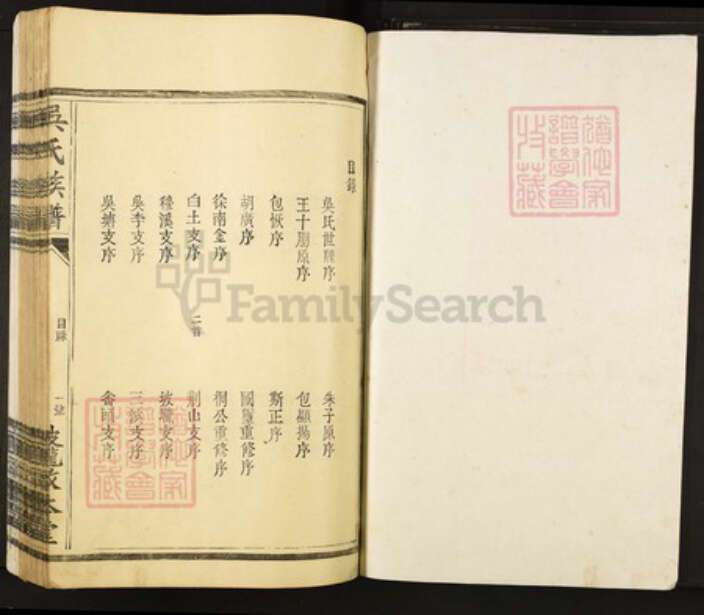 目錄
吳氏世牒序
朱子原序
王十朋原序
包顯揚序
包恢序
斯正序
胡廣序
國璽重修序
徐南金序
桐公重修序
白土支序 二首
荊山支序
種溪支序
坡隴支序
吳李支序
三溪支序
吳塘支序
畬頭支序
吳氏族譜
目錄
一號
敦本堂
譜學會
收藏
FamilySearch